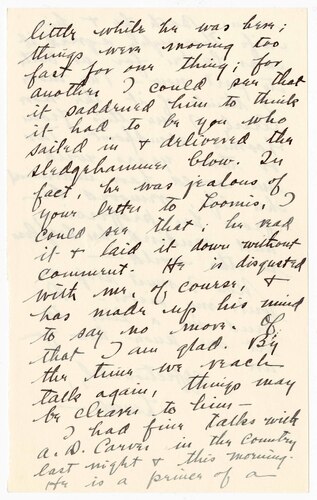 little while he was here;
things were moving too
fast for one thing; for
another I could see that
it saddened him to think
it had to be you who
sailed in & delivered the
sledgehammer blow. In
fact, he was jealous of
your letter to Loomis, I
could see that; he read
it & laid it down without
comment. He is disgusted
with me, of course, &
has made up his mind
to say no more. Of
that I am glad. By
the time we reach
talks again, things may
be clearer to him—
I had fine talks with
A. D. Carver in the country
last night & this morning.
He is a prince of a